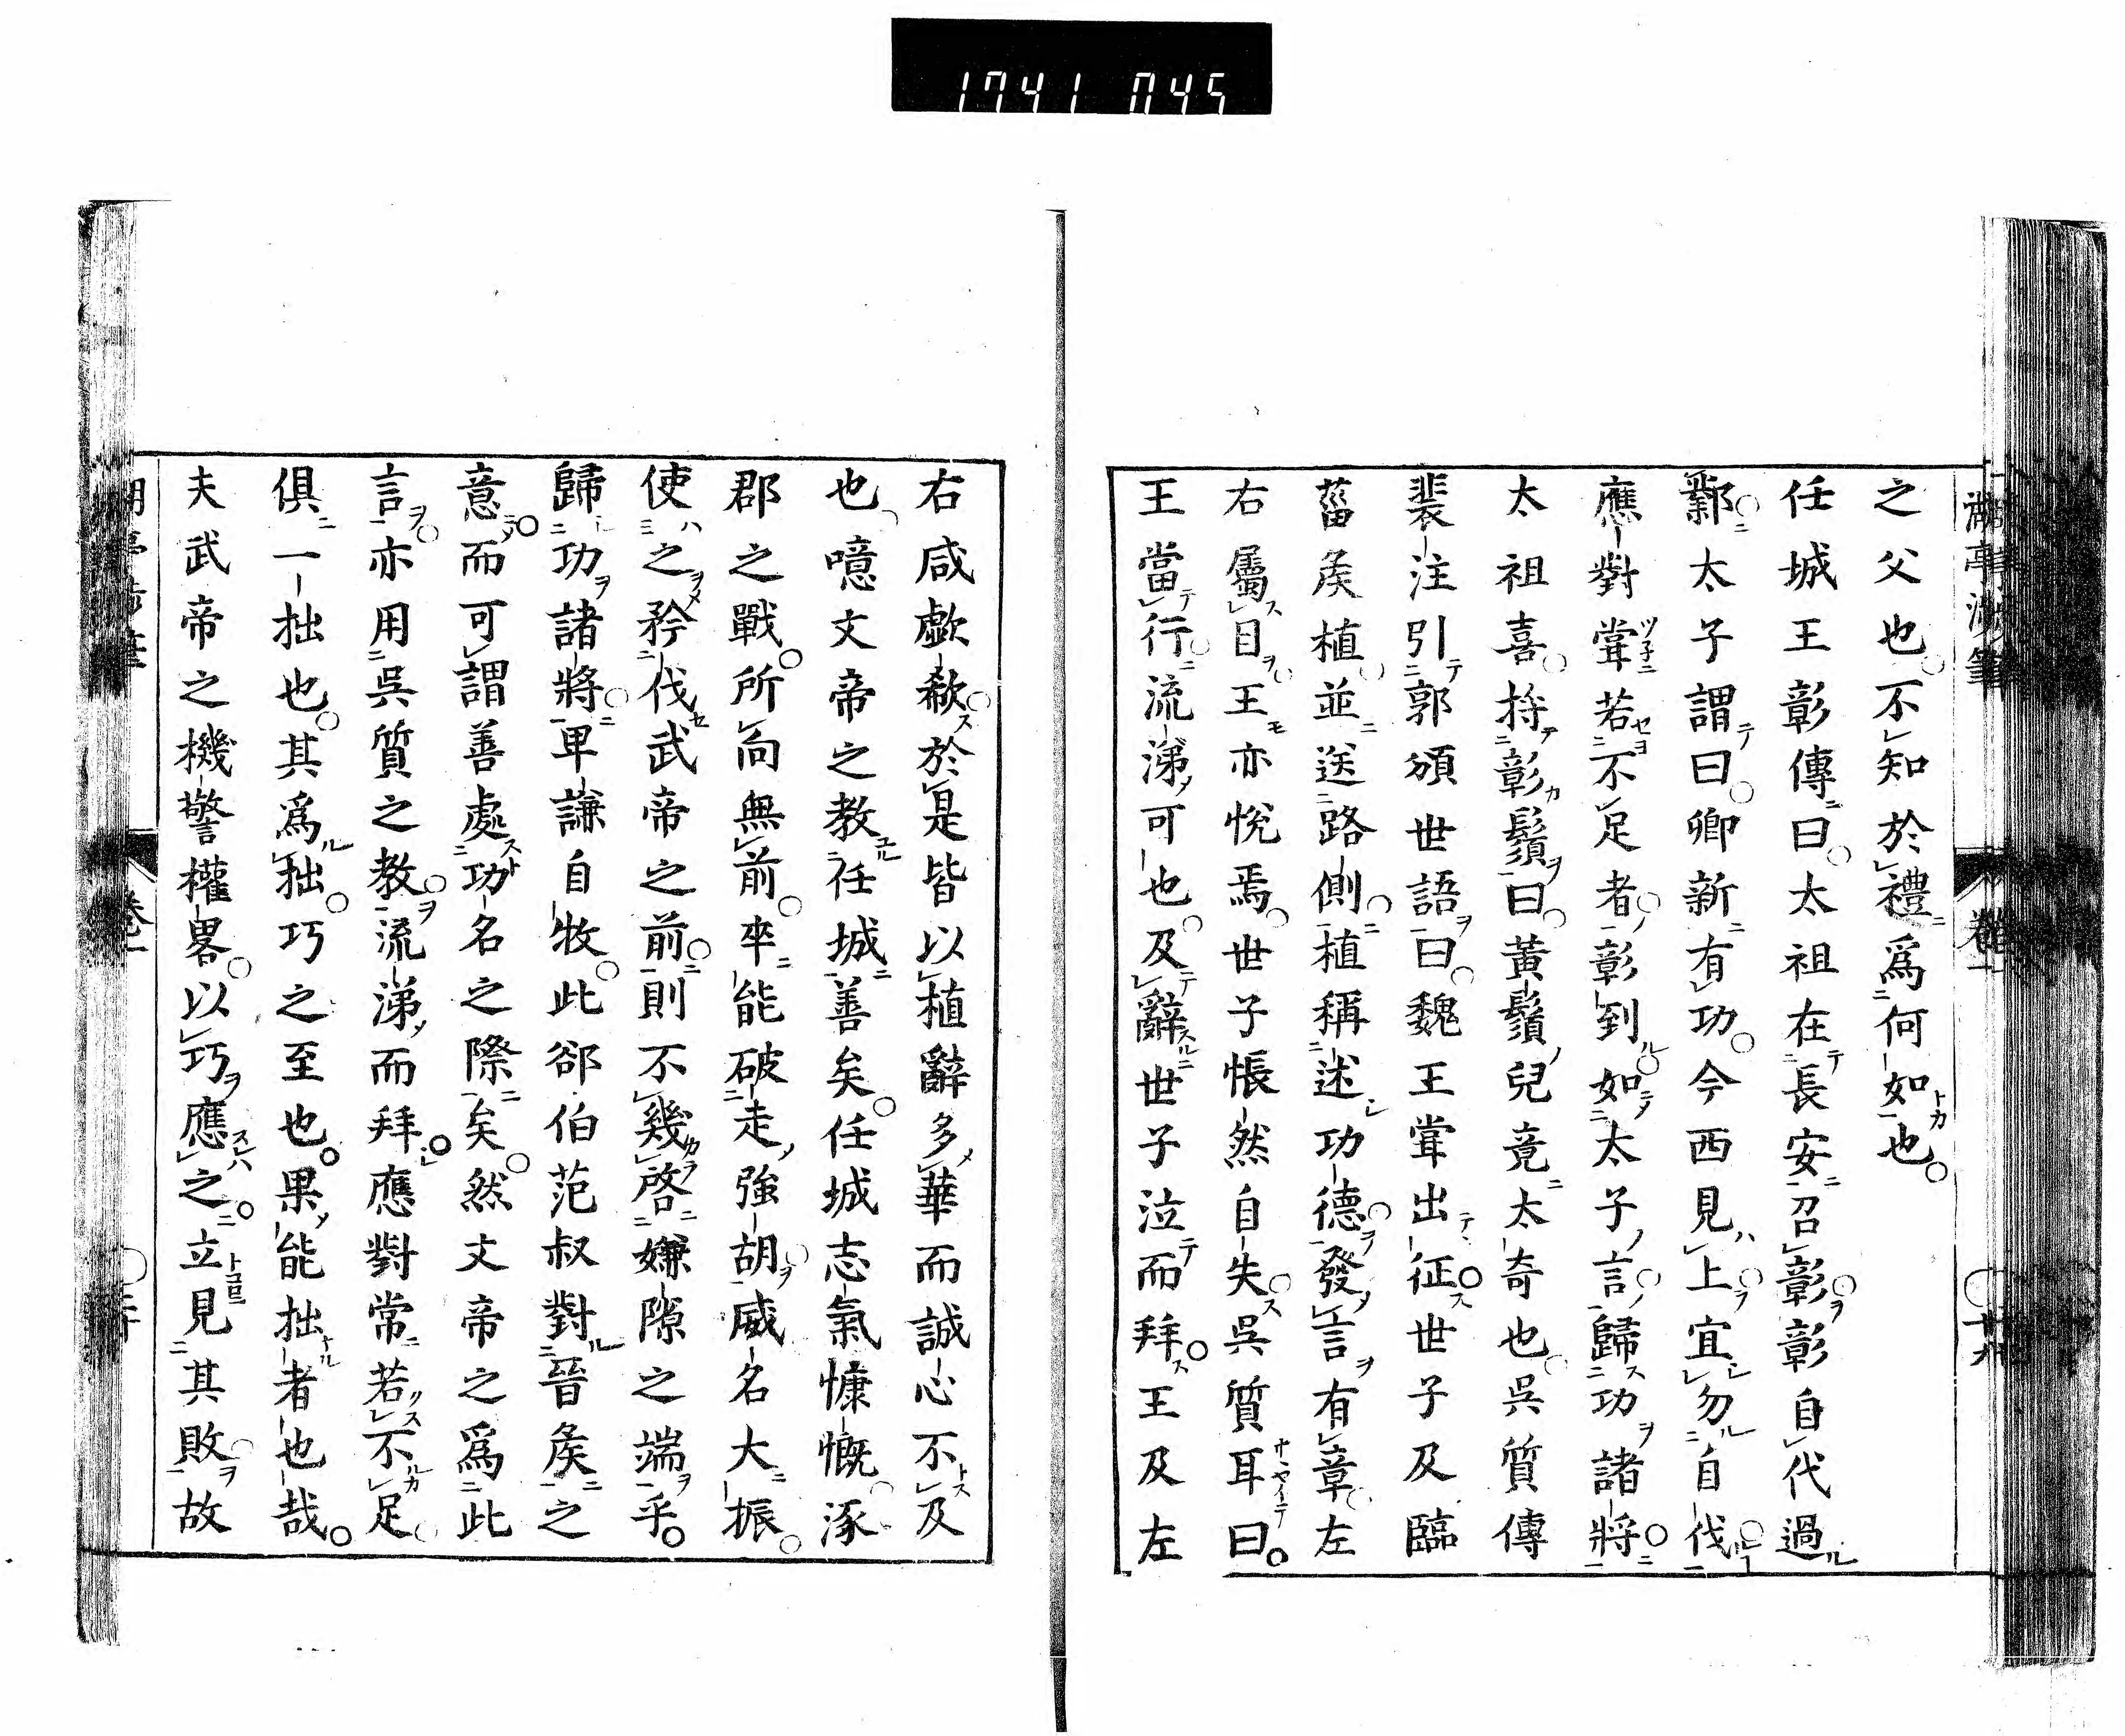 1741 045
之父也不知於禮爲何如也
任城王彰傳曰太祖在長安召彰彰自代過
鄴太子謂曰卿新有功今西見上宜勿自伐
應對常若不足者彰到如太子言歸功諸將
太祖喜持彰鬚曰黃鬚兒竟太奇也吳質傳
裴注引郭頒世語曰魏王嘗出征世子及臨
菑矦植並送路側植稱述功德發言有章左
右屬目王亦悅焉世子悵然自失吳質耳曰
王當行流涕可也及辭世子泣而拜王及左
右咸歔欷於是皆以植辭多華而誠心不及
也噫文帝之教任城善矣任城志氣慷慨涿
郡之戰所向無前卒能破走強胡威名大振
使之矜伐武帝之前則不幾啓嫌隙之端乎
歸功諸將卑謙自牧此郤伯范叔對晉矦之
意而可謂善處功名之際矣然文帝之爲此
言亦用吳質之教流涕而拜應對常若不足
俱一拙也其爲拙巧之至也果能拙者也哉
夫武帝之機警權畧以巧應之立見其敗故